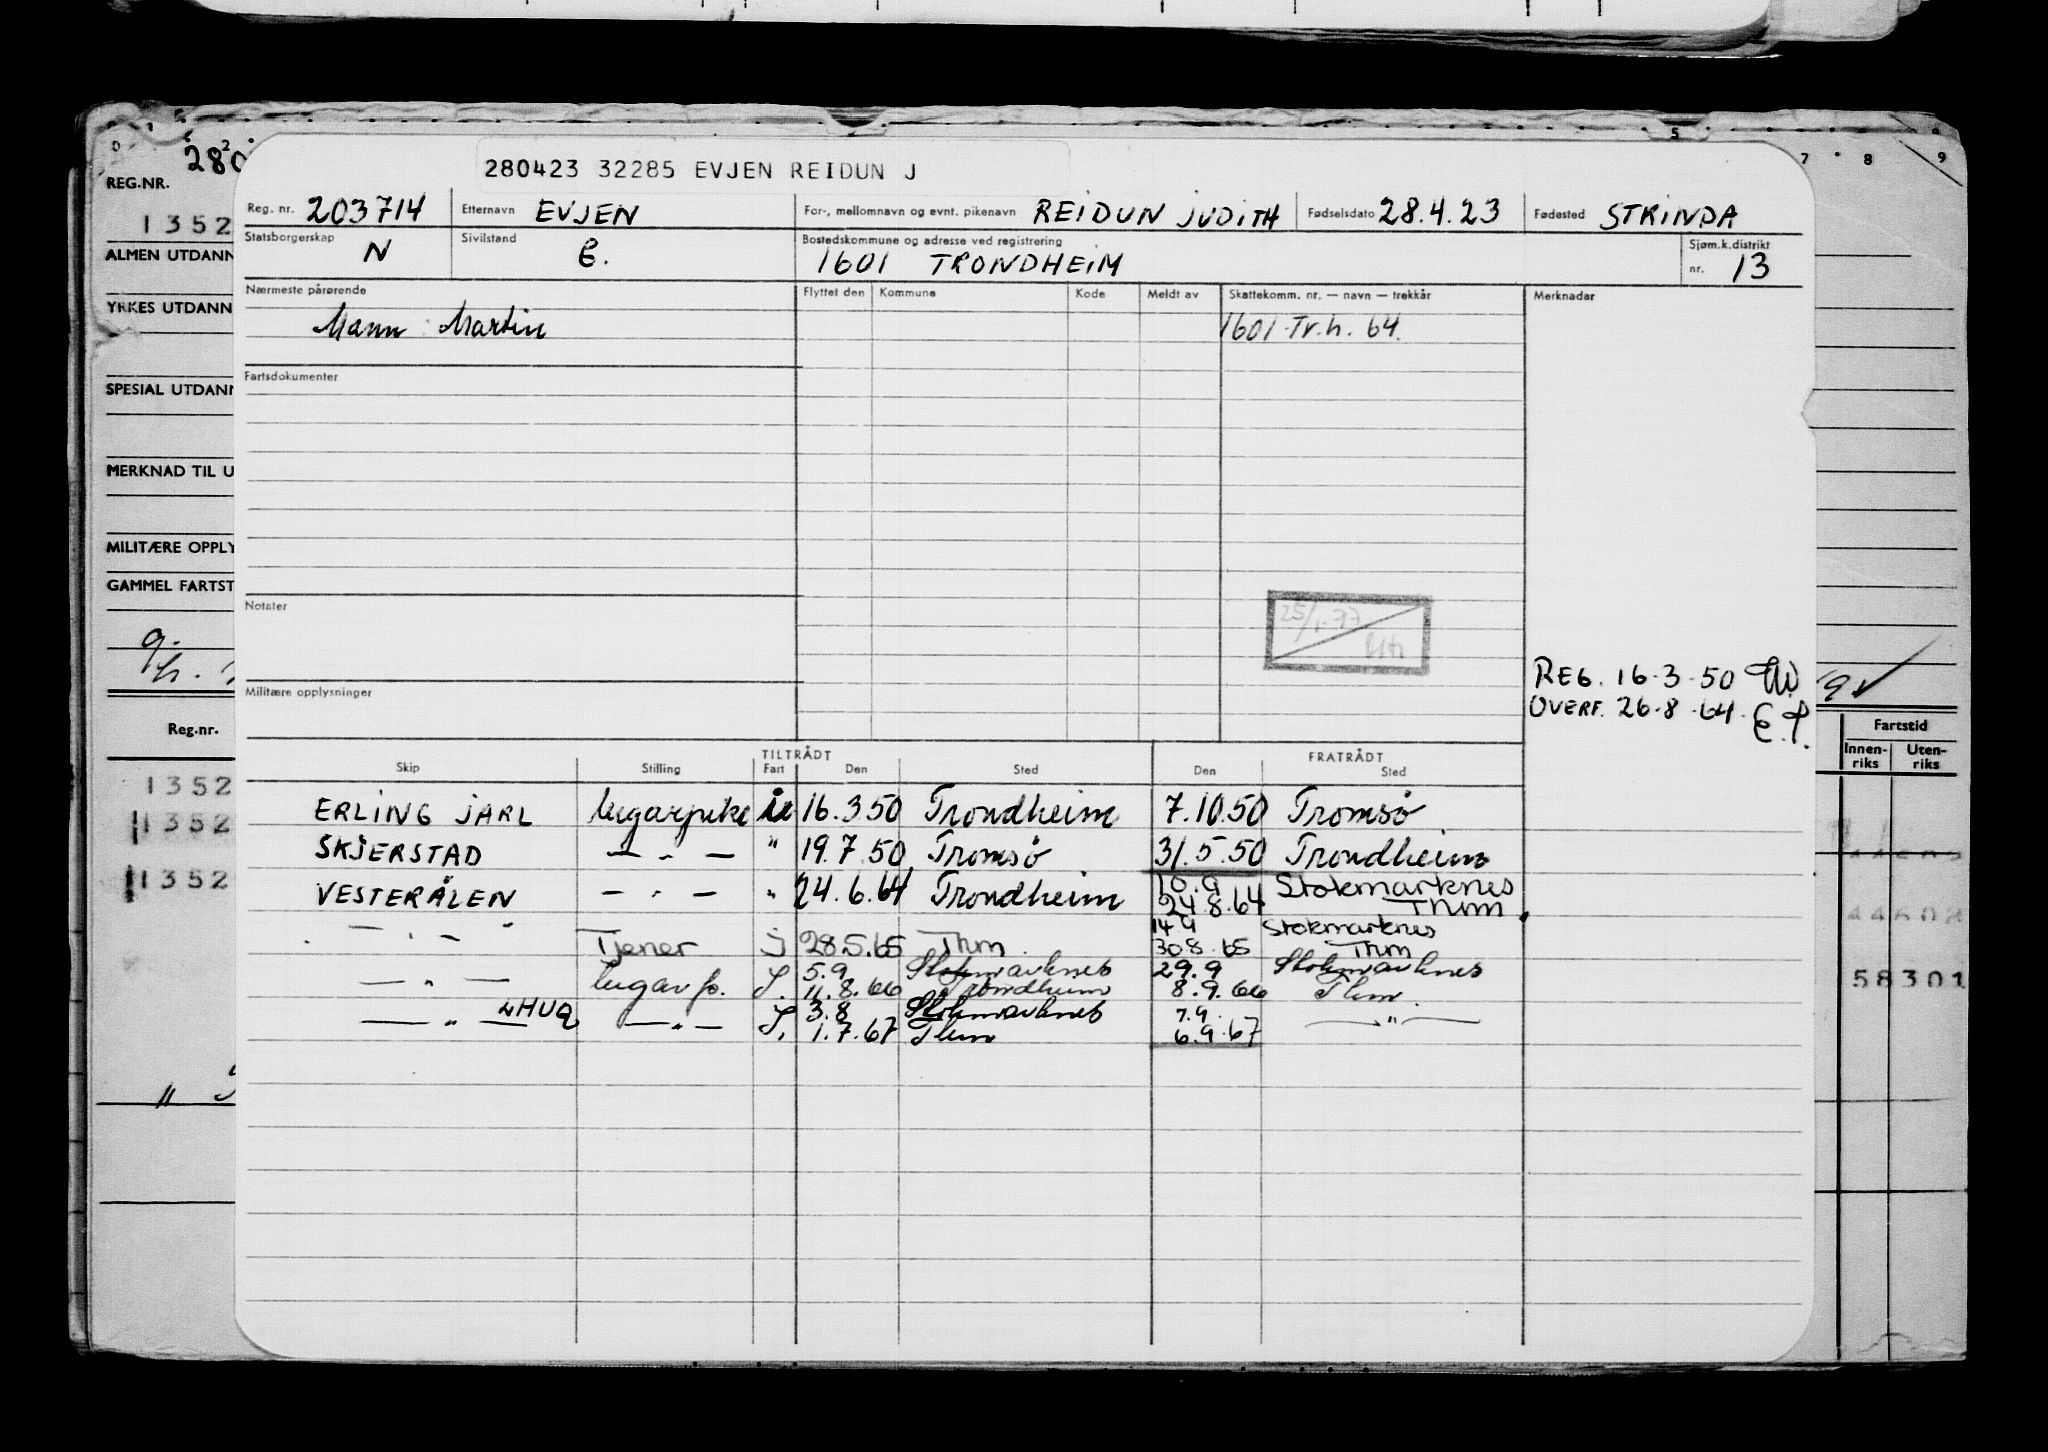 280423 32285 EVJEN REIDUN J
Reg. nr. 203714 Etternavn EVJEN For-, mellomnavn og evnt. pikenavn REIDUN JUDITH Fødselsdato 28.4.23 Fødested STRINDA
Statsborgerskap N Sivilstand E. Bostedskommune og adresse ved registrering 1601 TRONDHEIM Sjøm.k.distrikt nr. 13
Nærmeste pårørende Flyttet den Kommune Kode Meldt av Skattekomm. nr. — navn — trekkår Merknadar
Mann : Martin 1601 Tr.h. 64.
Fartsdokumenter
Notater
25/1-77
REG. 16-3-50
Militære opplysninger
OVERF. 26-8-64. E.P.
TILTRÅDT FRATRÅDT
Skip Stilling Fart Den Sted Den Sted
ERLING JARL lugarpike 16.3.50 Trondheim 7.10.50 Tromsø
SKJERSTAD — " — " 19.7.50 Tromsø 31.5.50 Trondheim
VESTERÅLEN — " — " 24.6.64 Trondheim 24.8.64 Thm
Stokmarknes
14.9 Stokmarknes
— " — " Tjener J 28.5.65 Thm 30.8.65 Thm
5.9 Stokmarknes 29.9 Stokmarknes
— " — lugarp. S. 11.8.66 Trondheim 8.9.66 Thm.
3.8 Stokmarknes 7.9.
— " — — " — S. 1.7.67 Thm 6.9.67 — " —
0 1 2 5 7 8 9
280
REG.NR.
1352
ALMEN UTDANN
YRKES UTDANN
SPESIAL UTDANN
MERKNAD TIL U
MILITÆRE OPPLY
GAMMEL FARTST
Reg.nr.
1352
1352
1352
"
Fartstid
Innen-riks Uten-riks
44502
58301